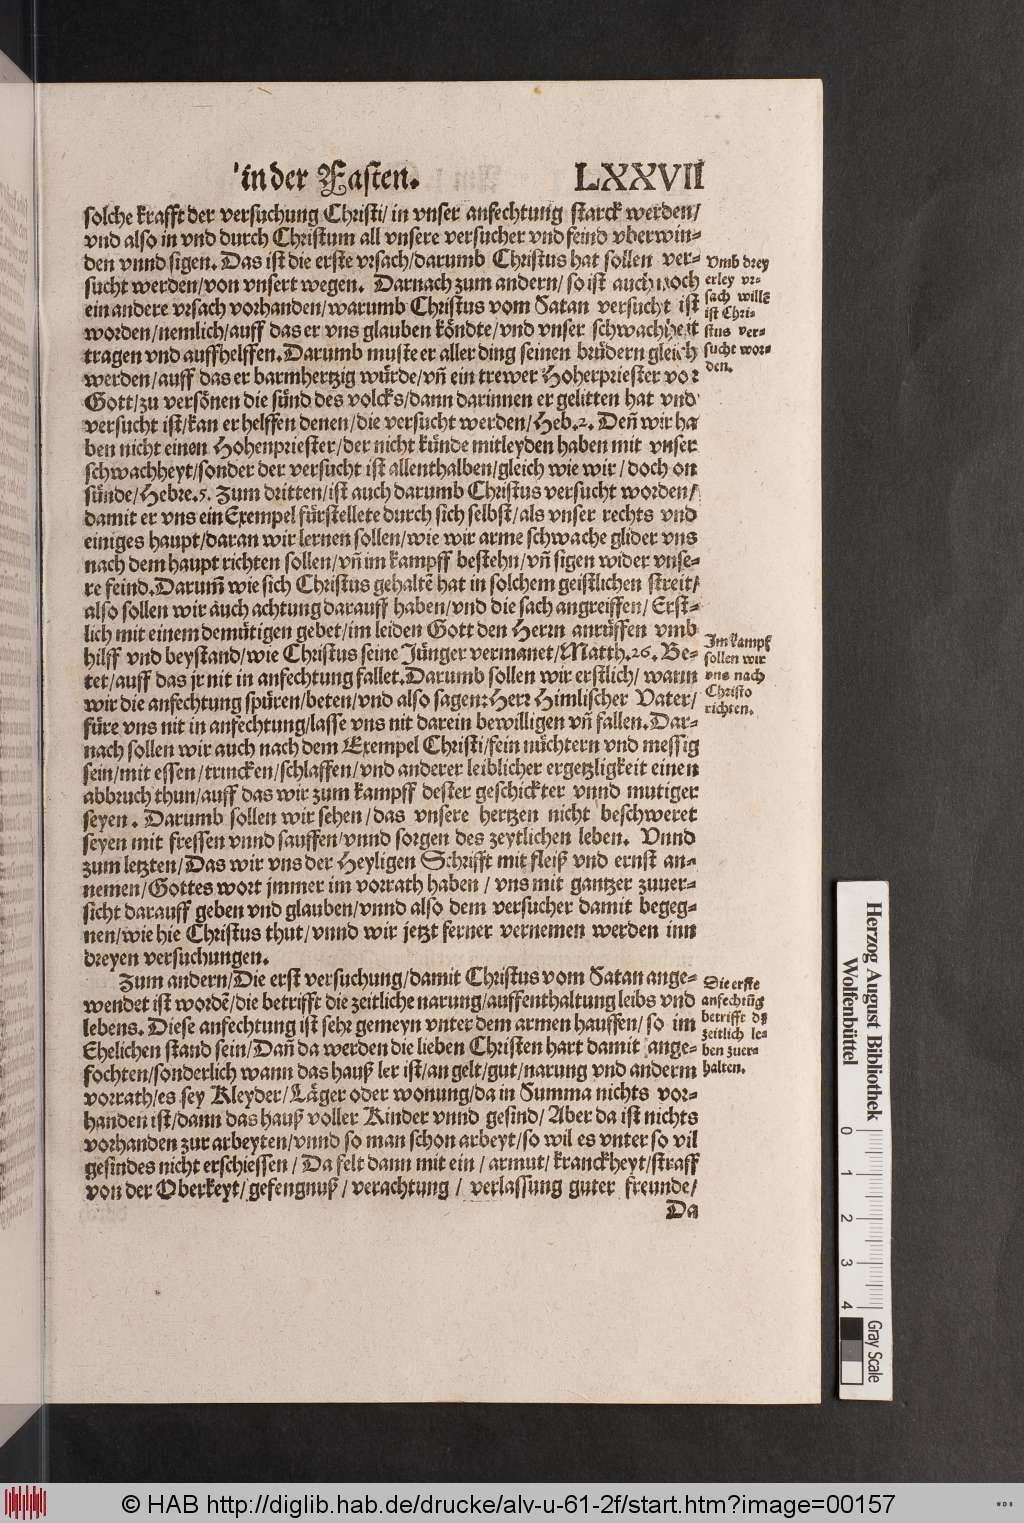 in der Fasten. LXXVII
solche krafft der versuchung Christi/ in vnser anfechtung starck werden/
vnd also in vnd durch Christum all vnsere versucher vnd feind vberwin-
den vnnd sigen. Das ist die erste vrsach/darumb Christus hat sollen ver-
sucht werden/von vnsert wegen. Darnach zum andern/ so ist auch noch
ein andere vrsach vorhanden/warumb Christus vom Satan versucht ist
worden/nemlich/auff das er vns glauben köndte/vnd vnser schwachheit
tragen vnd auffhelffen. Darumb muste er aller ding seinen brüdern gleich
werden/auff das er barmhertzig würde/vñ ein trewer Hoherpriester vor
Gott/zu versönen die sünd des volcks/dann darinnen er gelitten hat vnd
versucht ist/kan er helffen denen/die versucht werden/Heb.2. Deñ wir ha
ben nicht einen Hohenpriester/der nicht künde mitleyden haben mit vnser
schwachheyt/sonder der versucht ist allenthalben/gleich wie wir/ doch on
sünde/Hebre.5. Zum dritten/ist auch darumb Christus versucht worden/
damit er vns ein Exempel fürstellete durch sich selbst/als vnser rechts vnd
einiges haupt/daran wir lernen sollen/wie wir arme schwache glider vns
nach dem haupt richten sollen/vñ im kampff bestehn/vñ sigen wider vnse-
re feind. Darum̃ wie sich Christus gehaltē hat in solchem geistlichen streit/
also sollen wir auch achtung darauff haben/vnd die sach angreiffen/ Erst-
lich mit einem demütigen gebet/im leiden Gott den Herrn anrüffen vmb
hilff vnd beystand/wie Christus seine Jünger vermanet/Matth.26. Be-
tet/auff das jr nit in anfechtung fallet. Darumb sollen wir erstlich/ wann
wir die anfechtung spüren/beten/vnd also sagen: Herr Himlischer Vater/
füre vns nit in anfechtung/lasse vns nit darein bewilligen vñ fallen. Dar-
nach sollen wir auch nach dem Exempel Christi/fein nüchtern vnd messig
sein/mit essen/trincken/schlaffen/vnd anderer leiblicher ergetzligkeit einen
abbruch thun/auff das wir zum kampff dester geschickter vnnd mutiger
seyen. Darumb sollen wir sehen/das vnsere hertzen nicht beschweret
seyen mit fressen vnnd sauffen/vnnd sorgen des zeytlichen leben. Vnnd
zum letzten/Das wir vns der Heyligen Schrifft mit fleiß vnd ernst an-
nemen/Gottes wort jmmer im vorrath haben/ vns mit gantzer zuuer-
sicht darauff geben vnd glauben/vnnd also dem versucher damit begeg-
nen/wie hie Christus thut/vnnd wir jetzt ferner vernemen werden inn
dreyen versuchungen.
Zum andern/Die erst versuchung/damit Christus vom Satan ange-
wendet ist wordē/die betrifft die zeitliche narung/auffenthaltung leibs vnd
lebens. Diese anfechtung ist sehr gemeyn vnter dem armen hauffen/ so im
Ehelichen stand sein/Dañ da werden die lieben Christen hart damit ange-
fochten/sonderlich wann das hauß ler ist/an gelt/gut/narung vnd anderm
vorrath/es sey Kleyder/Läger oder wonung/da in Summa nichts vor-
handen ist/dann das hauß voller Kinder vnnd gesind/Aber da ist nichts
vorhanden zur arbeyten/vnnd so man schon arbeyt/so wil es vnter so vil
gesindes nicht erschiessen/ Da felt dann mit ein/armut/kranckheyt/straff
von der Oberkeyt/gefengnuß/verachtung/ verlassung guter freunde/
Da
Vmb drey
erley vr-
sach willē
ist Chri-
stus ver-
sucht wor-
den.
Im kampf
sollen wir
vns nach
Christo
richten.
Die erste
anfechtūg
betrifft dz
zeitlich le-
ben zuer-
halten.
Herzog August Bibliothek
Wolfenbüttel
0 1 2 3 4
Gray Scale
© HAB http://diglib.hab.de/drucke/alv-u-61-2f/start.htm?image=00157